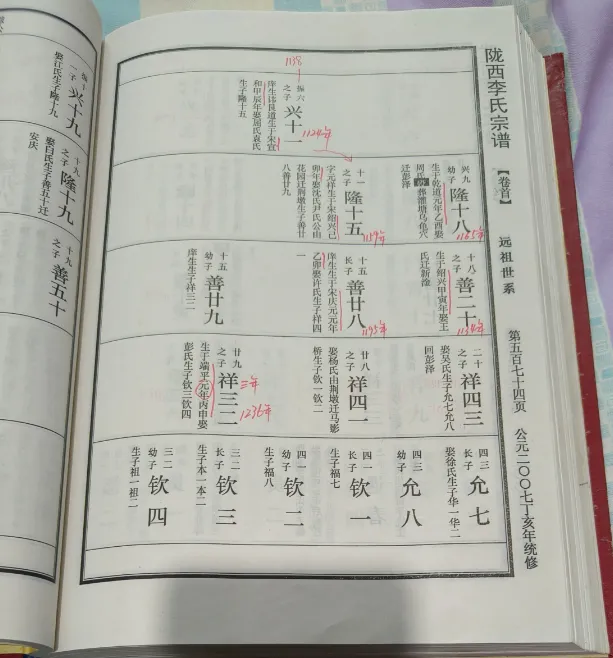 陇西李氏宗谱
【卷首】
远祖世系
第五百七十四页
公元二〇〇七丁亥年统修
1138
振六
之子
兴十一
1124年
庠生讳良道生于宋宣
和甲辰年娶屈氏袁氏
生子隆十五
兴九
幼子
隆十八
生于乾道元年乙酉娶
周氏
葬潽塘乌龟穴
迁彭泽
1165年
十一
之子
隆十五
字元祥生于宋绍兴己
卯年娶沈氏尹氏公由
花园迁荆墩生子善廿
八善廿九
1159年
十八
之子
善二十
生于绍兴甲寅年娶王
氏迁新淦
1134年
十五
长子
善廿八
庠生生于宋庆元元年
乙卯娶许氏生子祥四
一
1195年
十五
幼子
善廿九
庠生生子祥三二
二十
之子
祥四三
娶吴氏生子允七允八
回彭泽
廿八
之子
祥四一
娶杨氏由荆墩迁马影
桥生子钦一钦二
廿九
之子
祥三二
生于端平元年丙申娶
彭氏生子钦三钦四
三年
1236年
四三
长子
允七
娶徐氏生子华一华二
四三
幼子
允八
四一
长子
钦一
生子福七
四一
幼子
钦二
生子福八
三二
长子
钦三
生子本一本二
三二
幼子
钦四
生子祖一祖二
振十
一子
兴十九
娶江氏生子隆十九
十九
之子
隆十九
娶白氏生子善五十迁
安庆
十九
之子
善五十